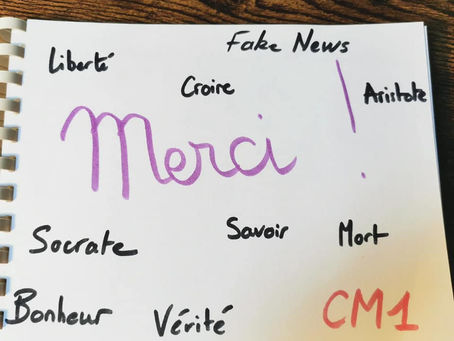 Fake News
Liberté
Croire
Aristote
Merci !
Socrate
Savoir
Mort
Bonheur
Vérité
CM1